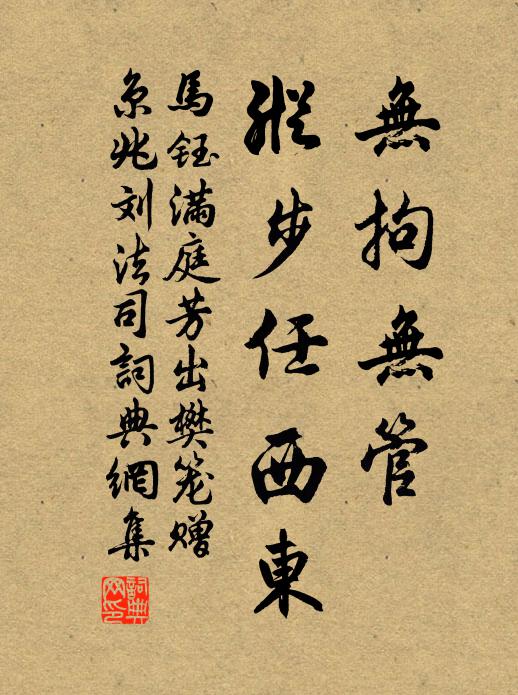 無拘無管
縱步任西東
馬鈺滿庭芳出樊笼赠
京兆刘法司詞典網集
詞典网印